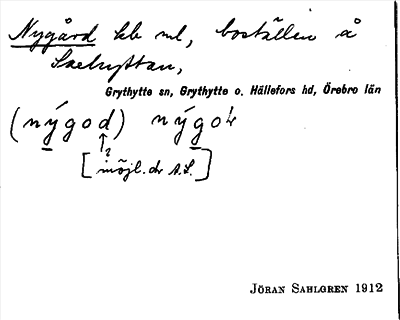 Nygård kb ml, boställen å
Saxhyttan,
Grythytte sn, Grythytte o. Hällefors hd, Örebro län
(nýgod) nýgoʳ
?
[möjl. dr A.S.]
JÖRAN SAHLGREN 1912